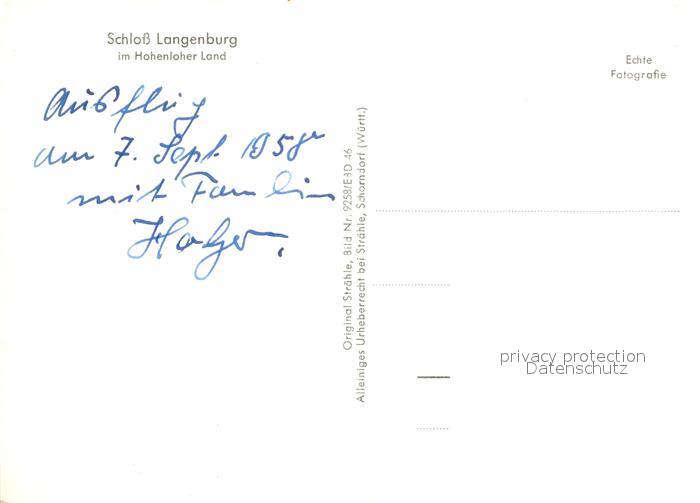 Schloß Langenburg
im Hohenloher Land
Echte
Fotografie
Ausflug
am 7. Sept. 1958
mit Familie
Original Strähle, Bild Nr. 9258/EBD 46
Alleiniges Urheberrecht bei Strähle, Schorndorf (Württ.)
privacy protection
Datenschutz